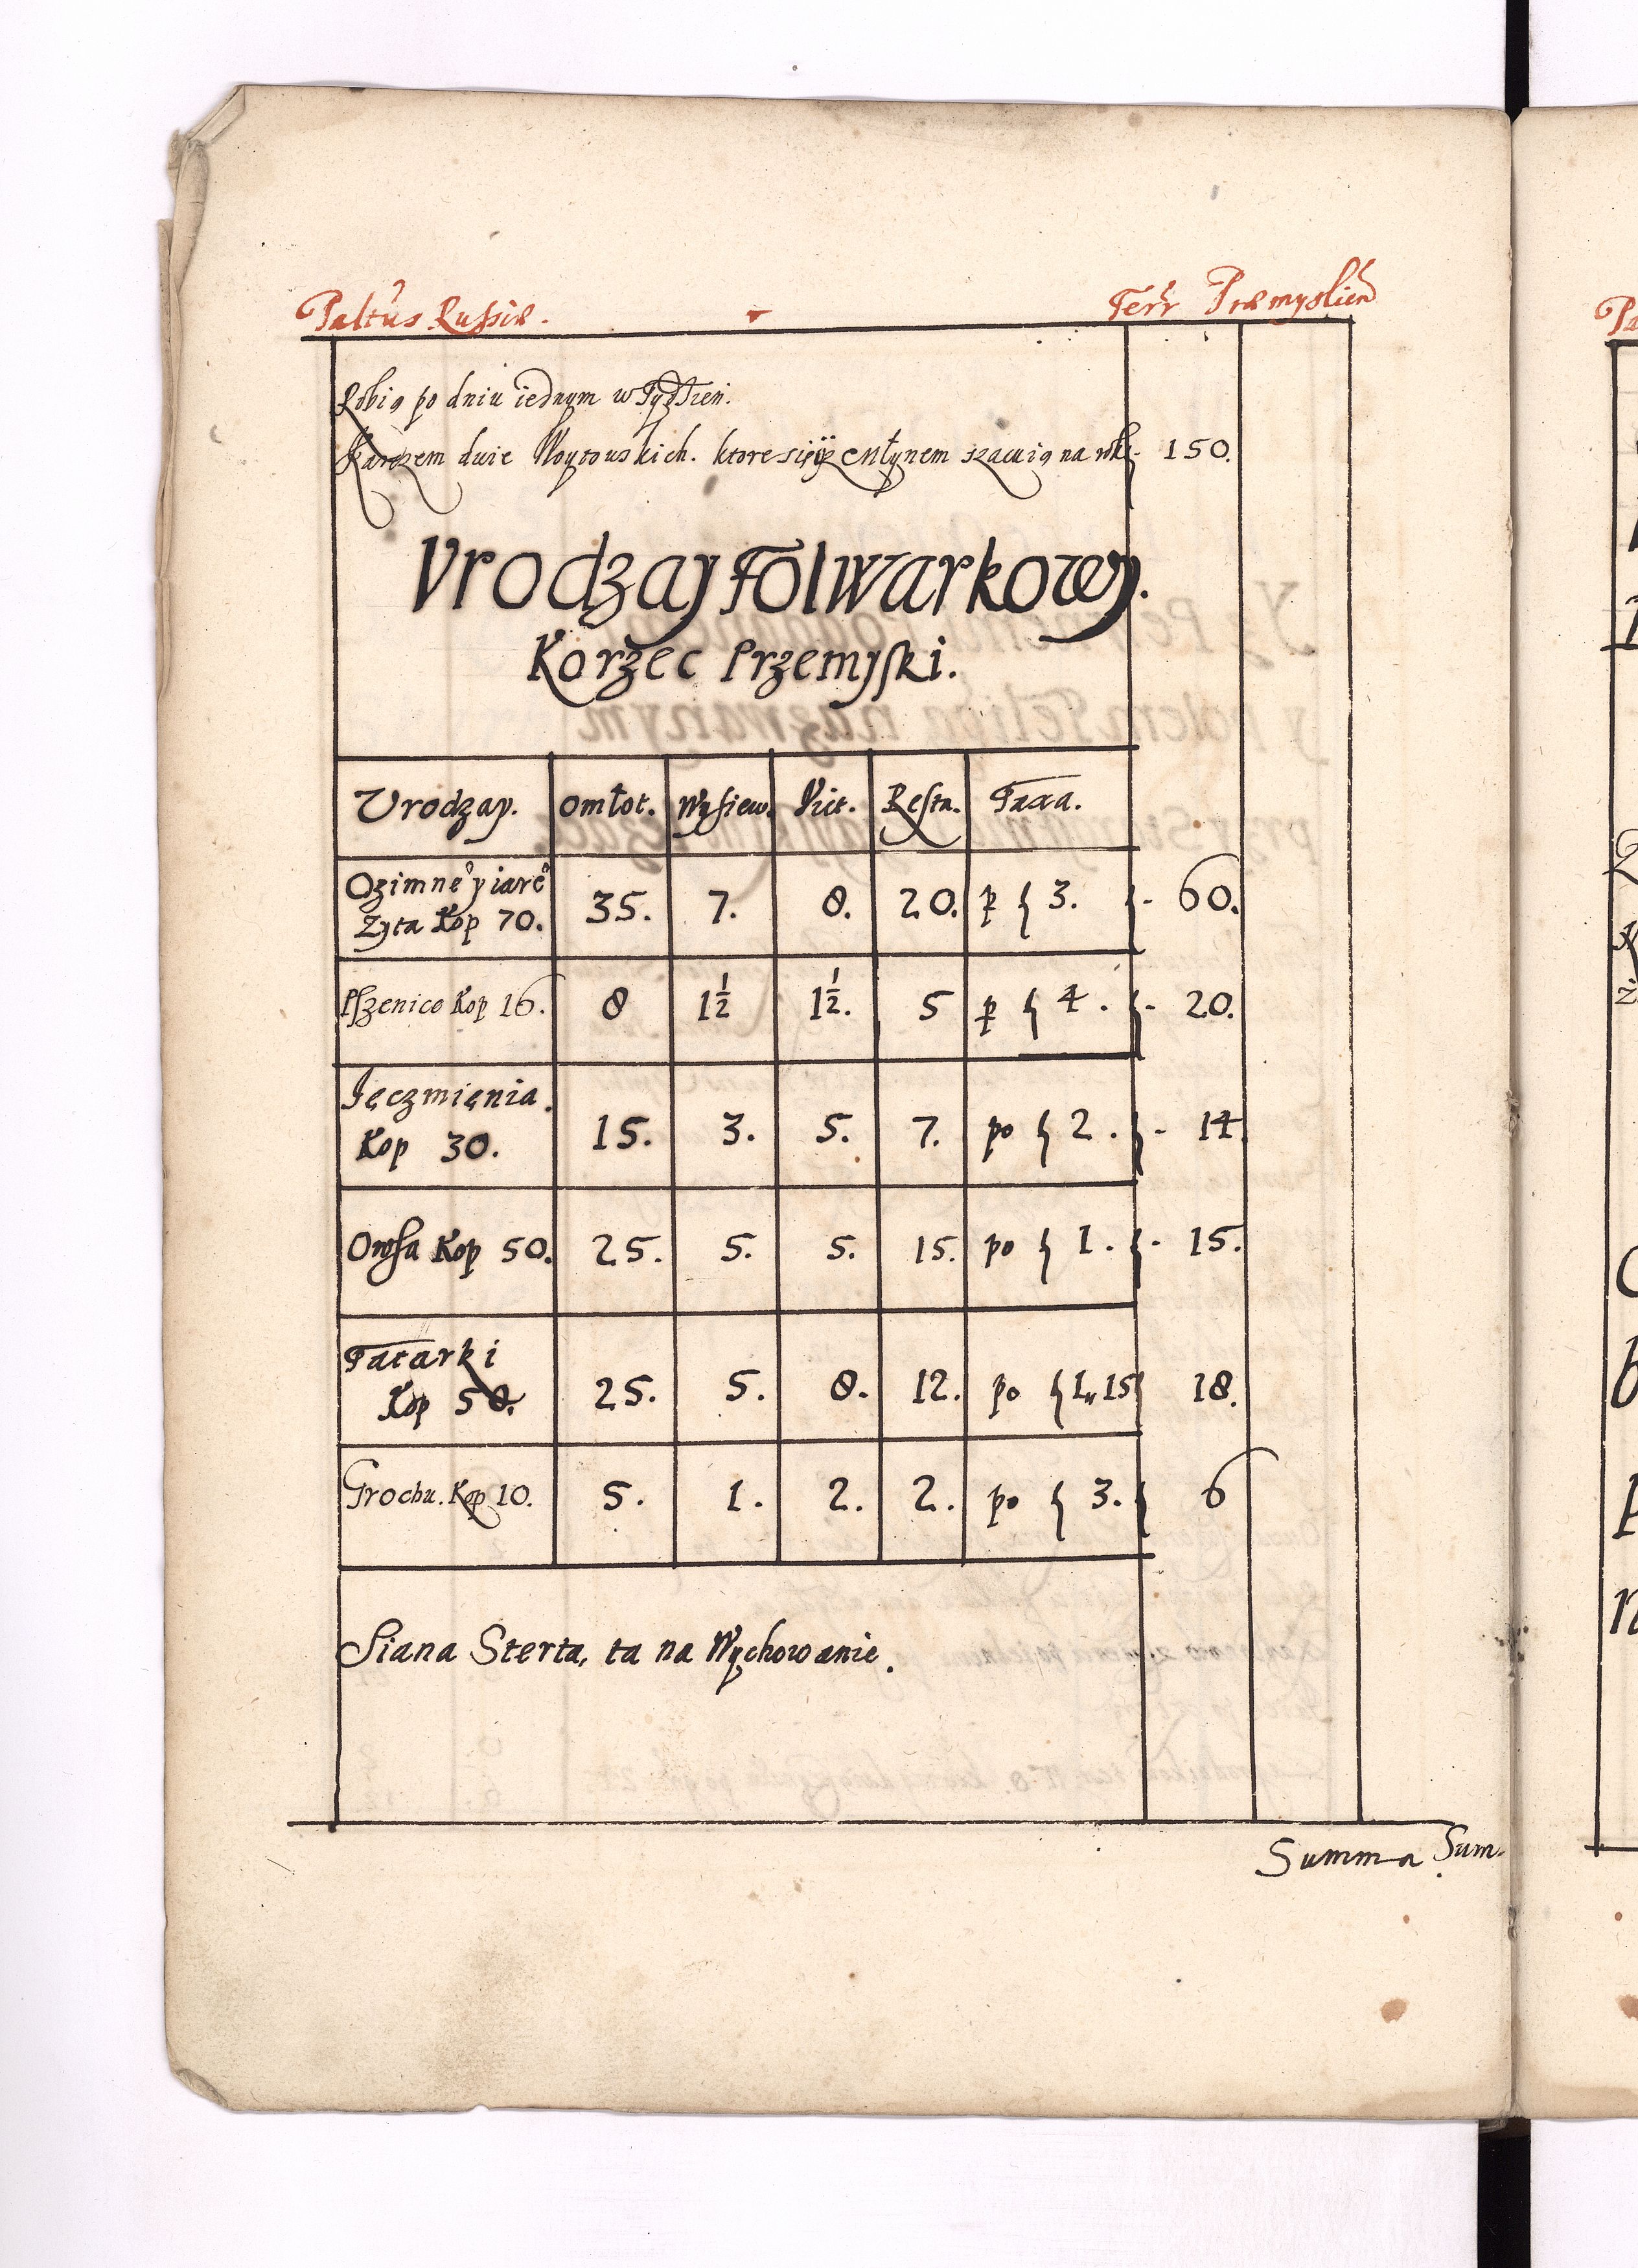 Paltus Russiæ.
Terr Præmyslien
Robią po dniu iednym w Tydzien.
Karczem dwie Woytowskich. ktore się y z Młynem szacuią na rok - 150.
Vrodzay Folwarkowy.
Korzec Przemyski.
Urodzay. Omłot. Wysiew. Vict. Resta. Taxa.
Ozimne y iare
Zyta Kop 70. 35. 7. 8. 20. p { 3. - 60.
Pszenice Kop 16. 8 1½ 1½. 5 p { 4. - 20.
Ięczmięnia.
Kop 30. 15. 3. 5. 7. po { 2. - 14.
Owsa Kop 50. 25. 5. 5. 15. po { 1. - 15.
Tatarki
Kop 50. 25. 5. 8. 12. po { 1,, 15 18.
Grochu. Kop 10. 5. 1. 2. 2. po { 3. 6
Siana Sterta, ta na Wychowanie.
Summa Sum-